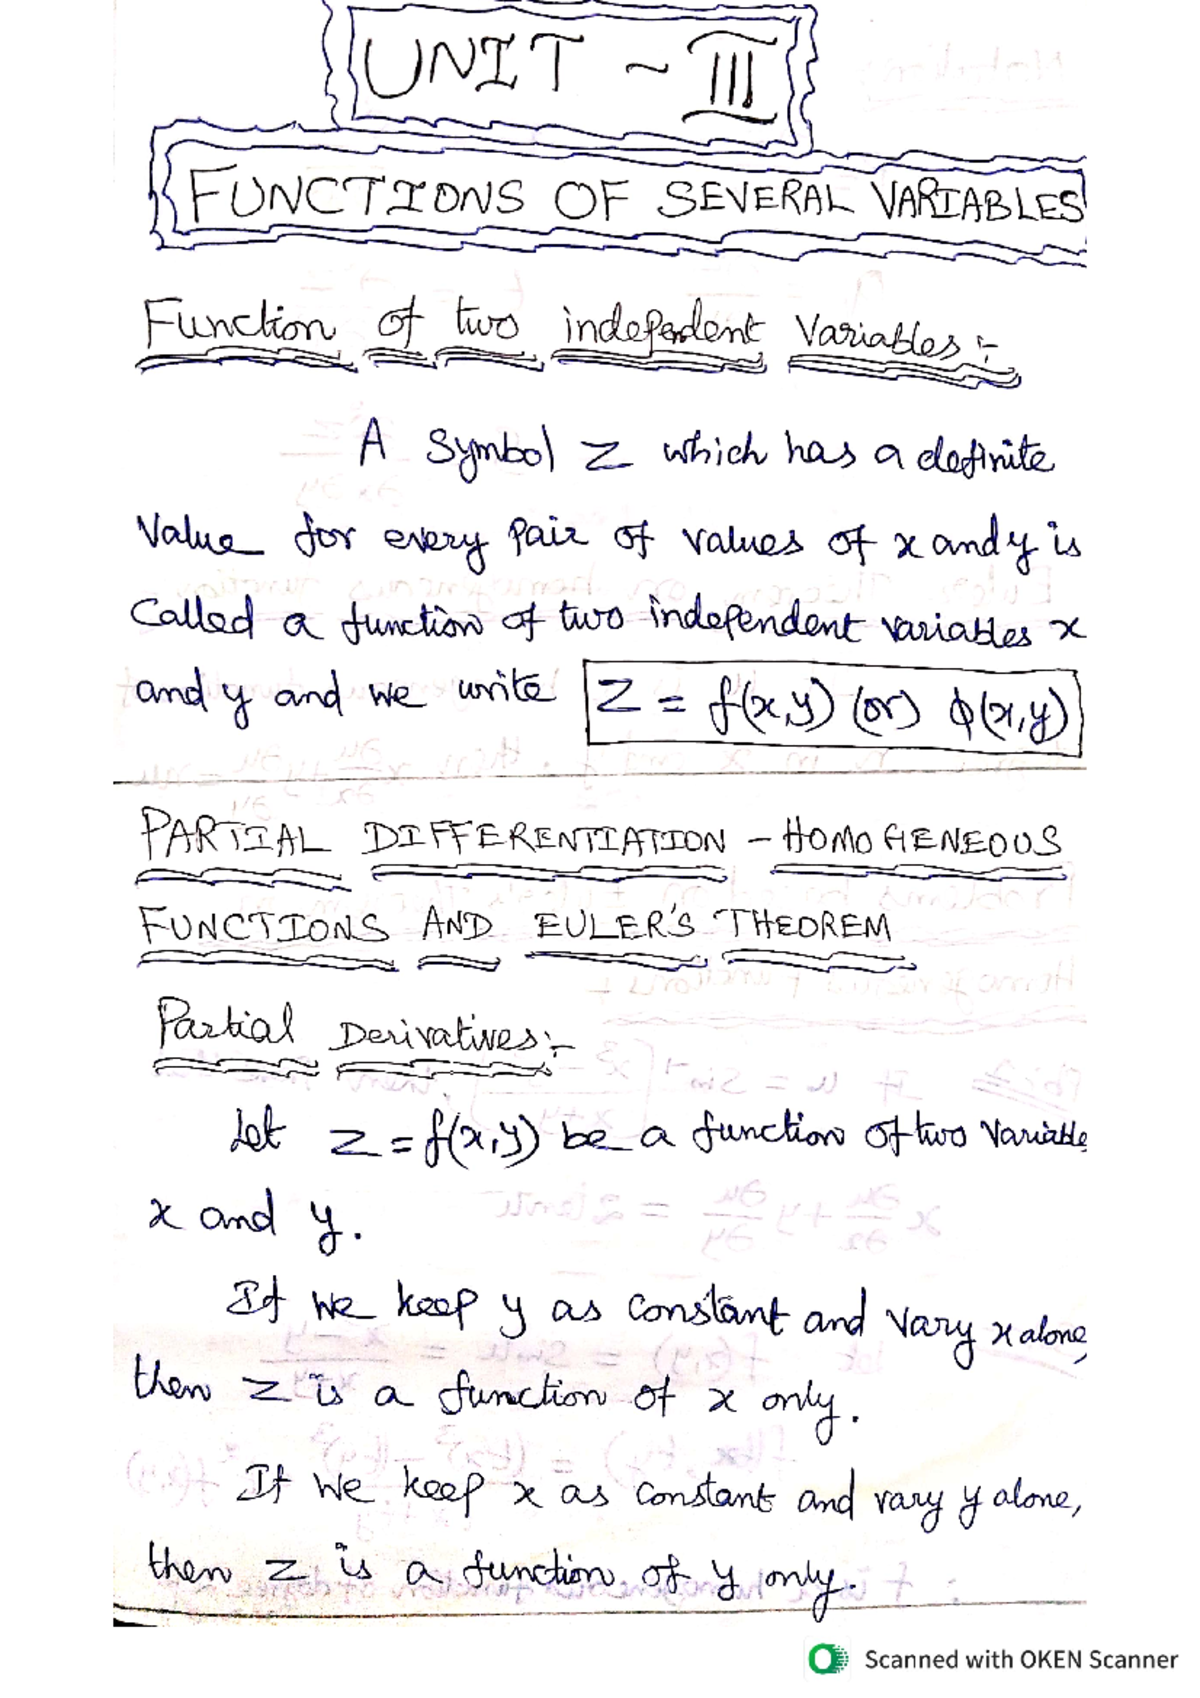 UNIT ~ III
FUNCTIONS OF SEVERAL VARIABLES
Function of two independent Variables:-
A Symbol Z which has a definite
Value for every pair of values of x and y is
Called a function of two independent variables x
and y and we write Z = f(x,y) (or) ϕ(x,y)
PARTIAL DIFFERENTIATION - HOMOGENEOUS
FUNCTIONS AND EULER'S THEOREM
Partial Derivatives:-
Let Z = f(x,y) be a function of two Variable
x and y.
If we keep y as constant and vary x alone,
then Z is a function of x only.
If we keep x as constant and vary y alone,
then Z is a function of y only.
Scanned with OKEN Scanner